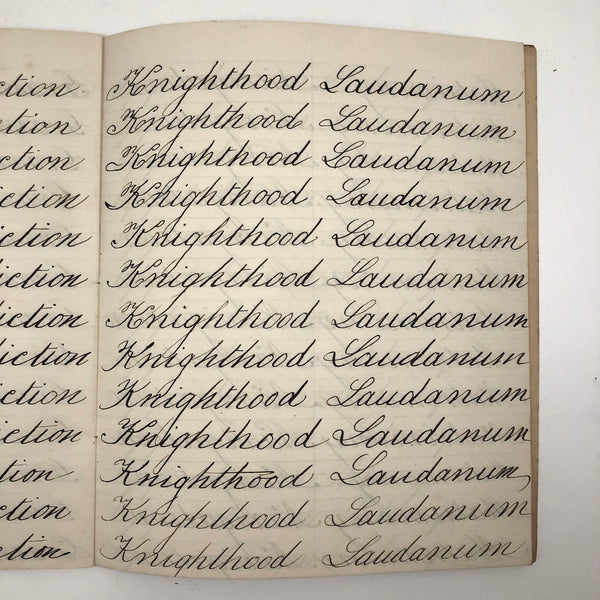 ction
tion
ction
ction
iction
iction
iction
iction
ction
iction
tion
ction
ction
Knighthood Laudanum
Knighthood Laudanum
Knighthood Laudanum
Knighthood Laudanum
Knighthood Laudanum
Knighthood Laudanum
Knighthood Laudanum
Knighthood Laudanum
Knighthood Laudanum
Knighthood Laudanum
Knighthood Laudanum
Knighthood Laudanum
Knighthood Laudanum